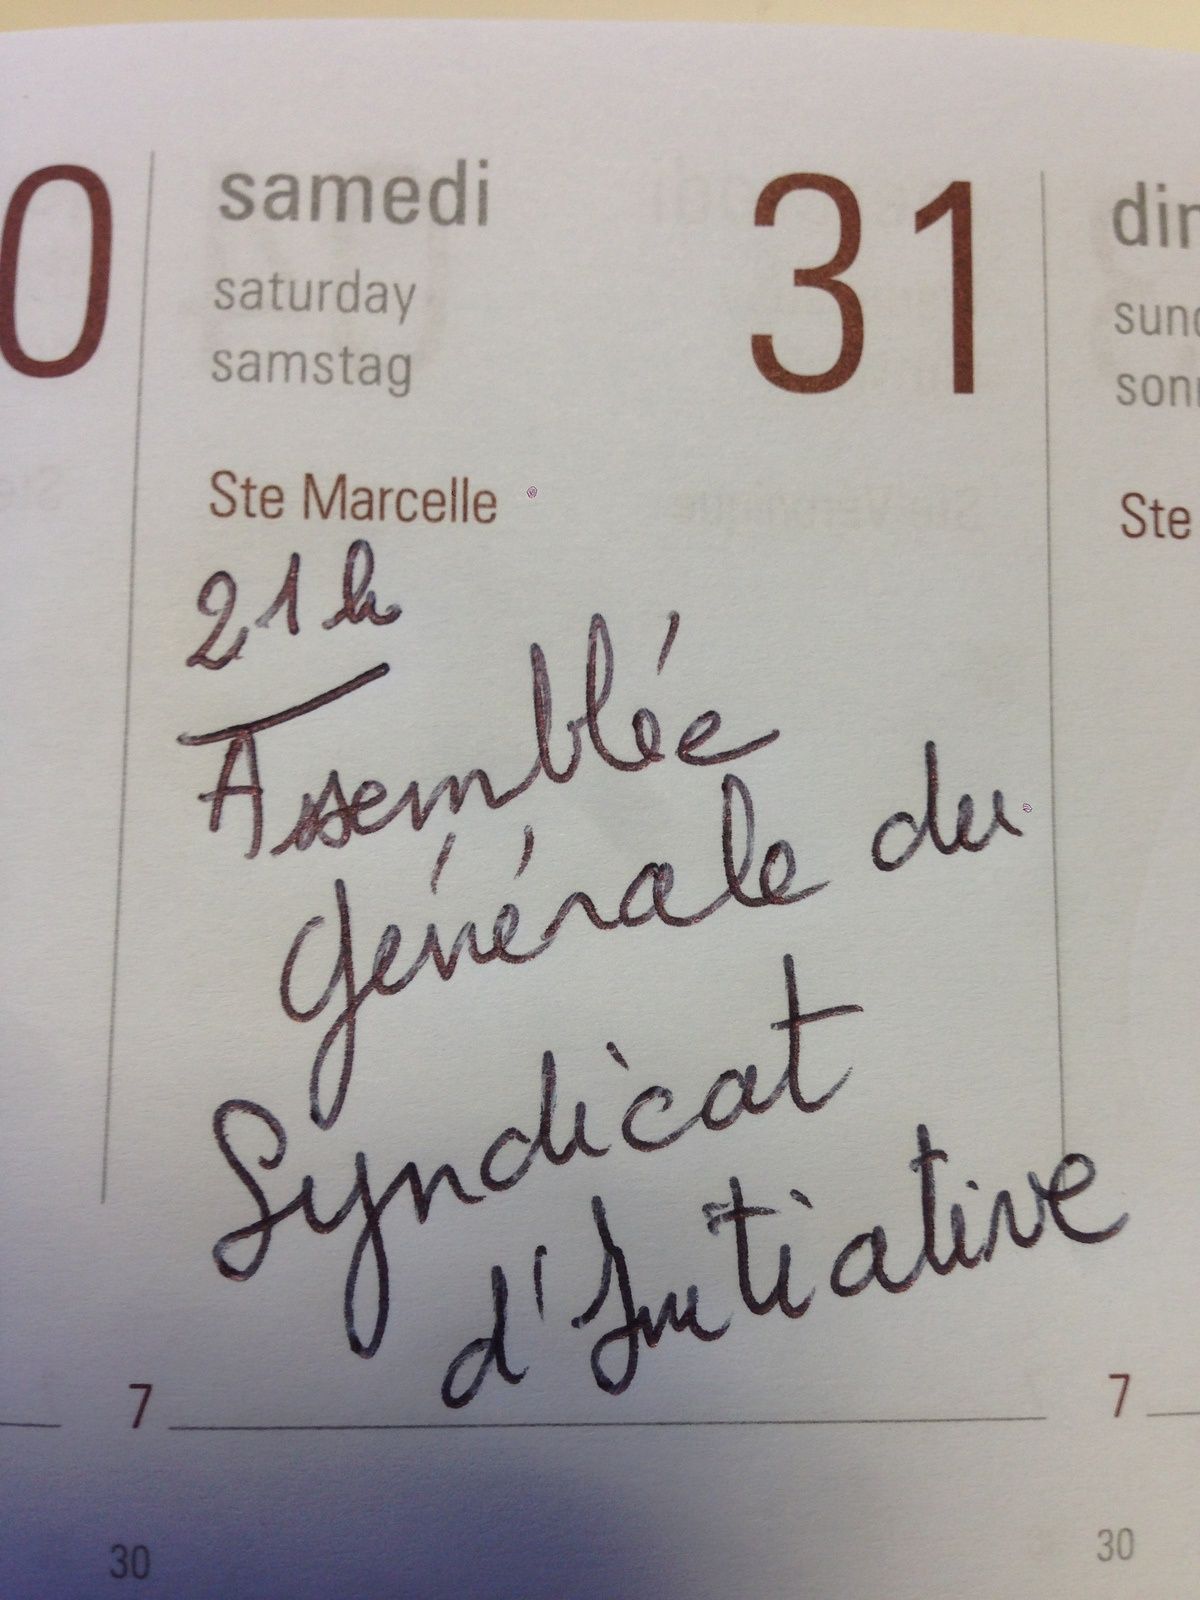 0 samedi 31 din
saturday sund
samstag sonn
Ste Marcelle Ste
21h
Assemblée
Générale du
Syndicat
d'Initiative
7 7
30 30